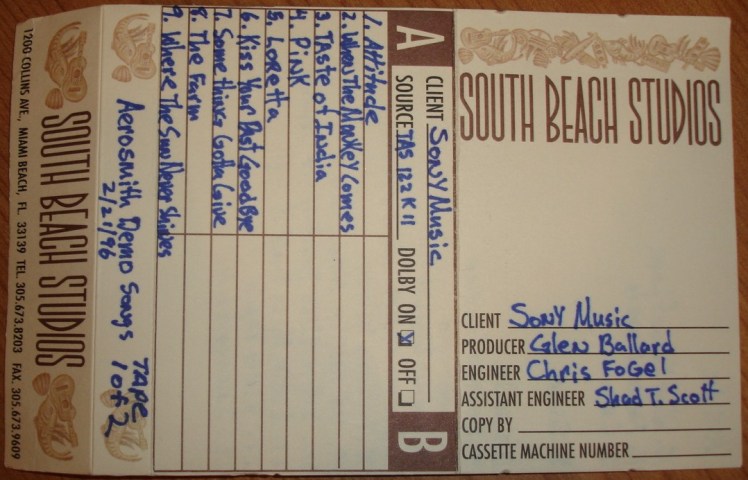 SOUTH BEACH STUDIOS
CLIENT Sony Music
PRODUCER Glen Ballard
ENGINEER Chris Fogel
ASSISTANT ENGINEER Shad T. Scott
COPY BY
CASSETTE MACHINE NUMBER
A
CLIENT Sony Music
SOURCE TAS 122 K II DOLBY ON ☒ OFF ☐
B
1. Attitude
2. When The Monkey Comes
3 Taste of India
4. Pink
5. Loretta
6. Kiss Your Past GoodBye
7. Something Gotta Give
8. The Farm
9. Where The Sun Never Shines
Aerosmith Demo songs
2/21/96
Tape
1 of 2
SOUTH BEACH STUDIOS
1200 COLLINS AVE, MIAMI BEACH, FL. 33139 TEL. 305.673.8203 FAX. 305.673.9609